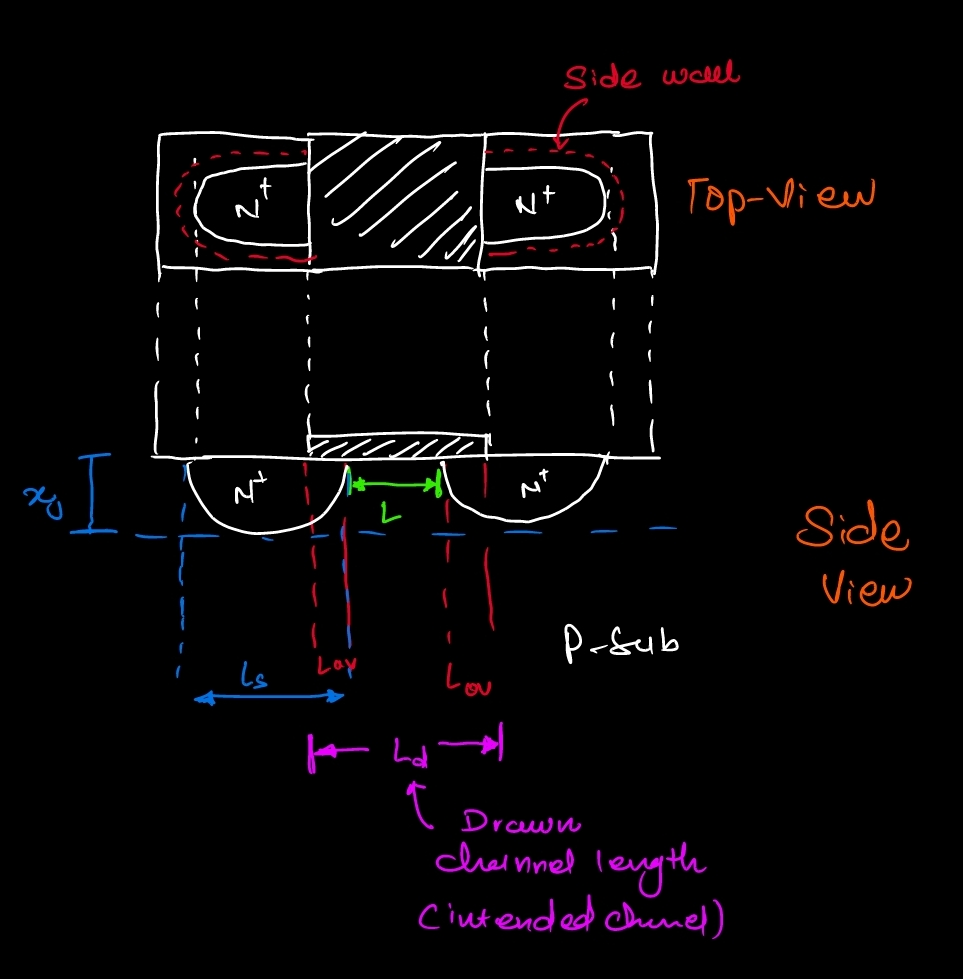 Side wall
N+
N+
Top-View
N+
N+
xj
L
Side
View
P-Sub
Lov
Ls
Lov
Ld
Drawn
channel length
(intended channel)